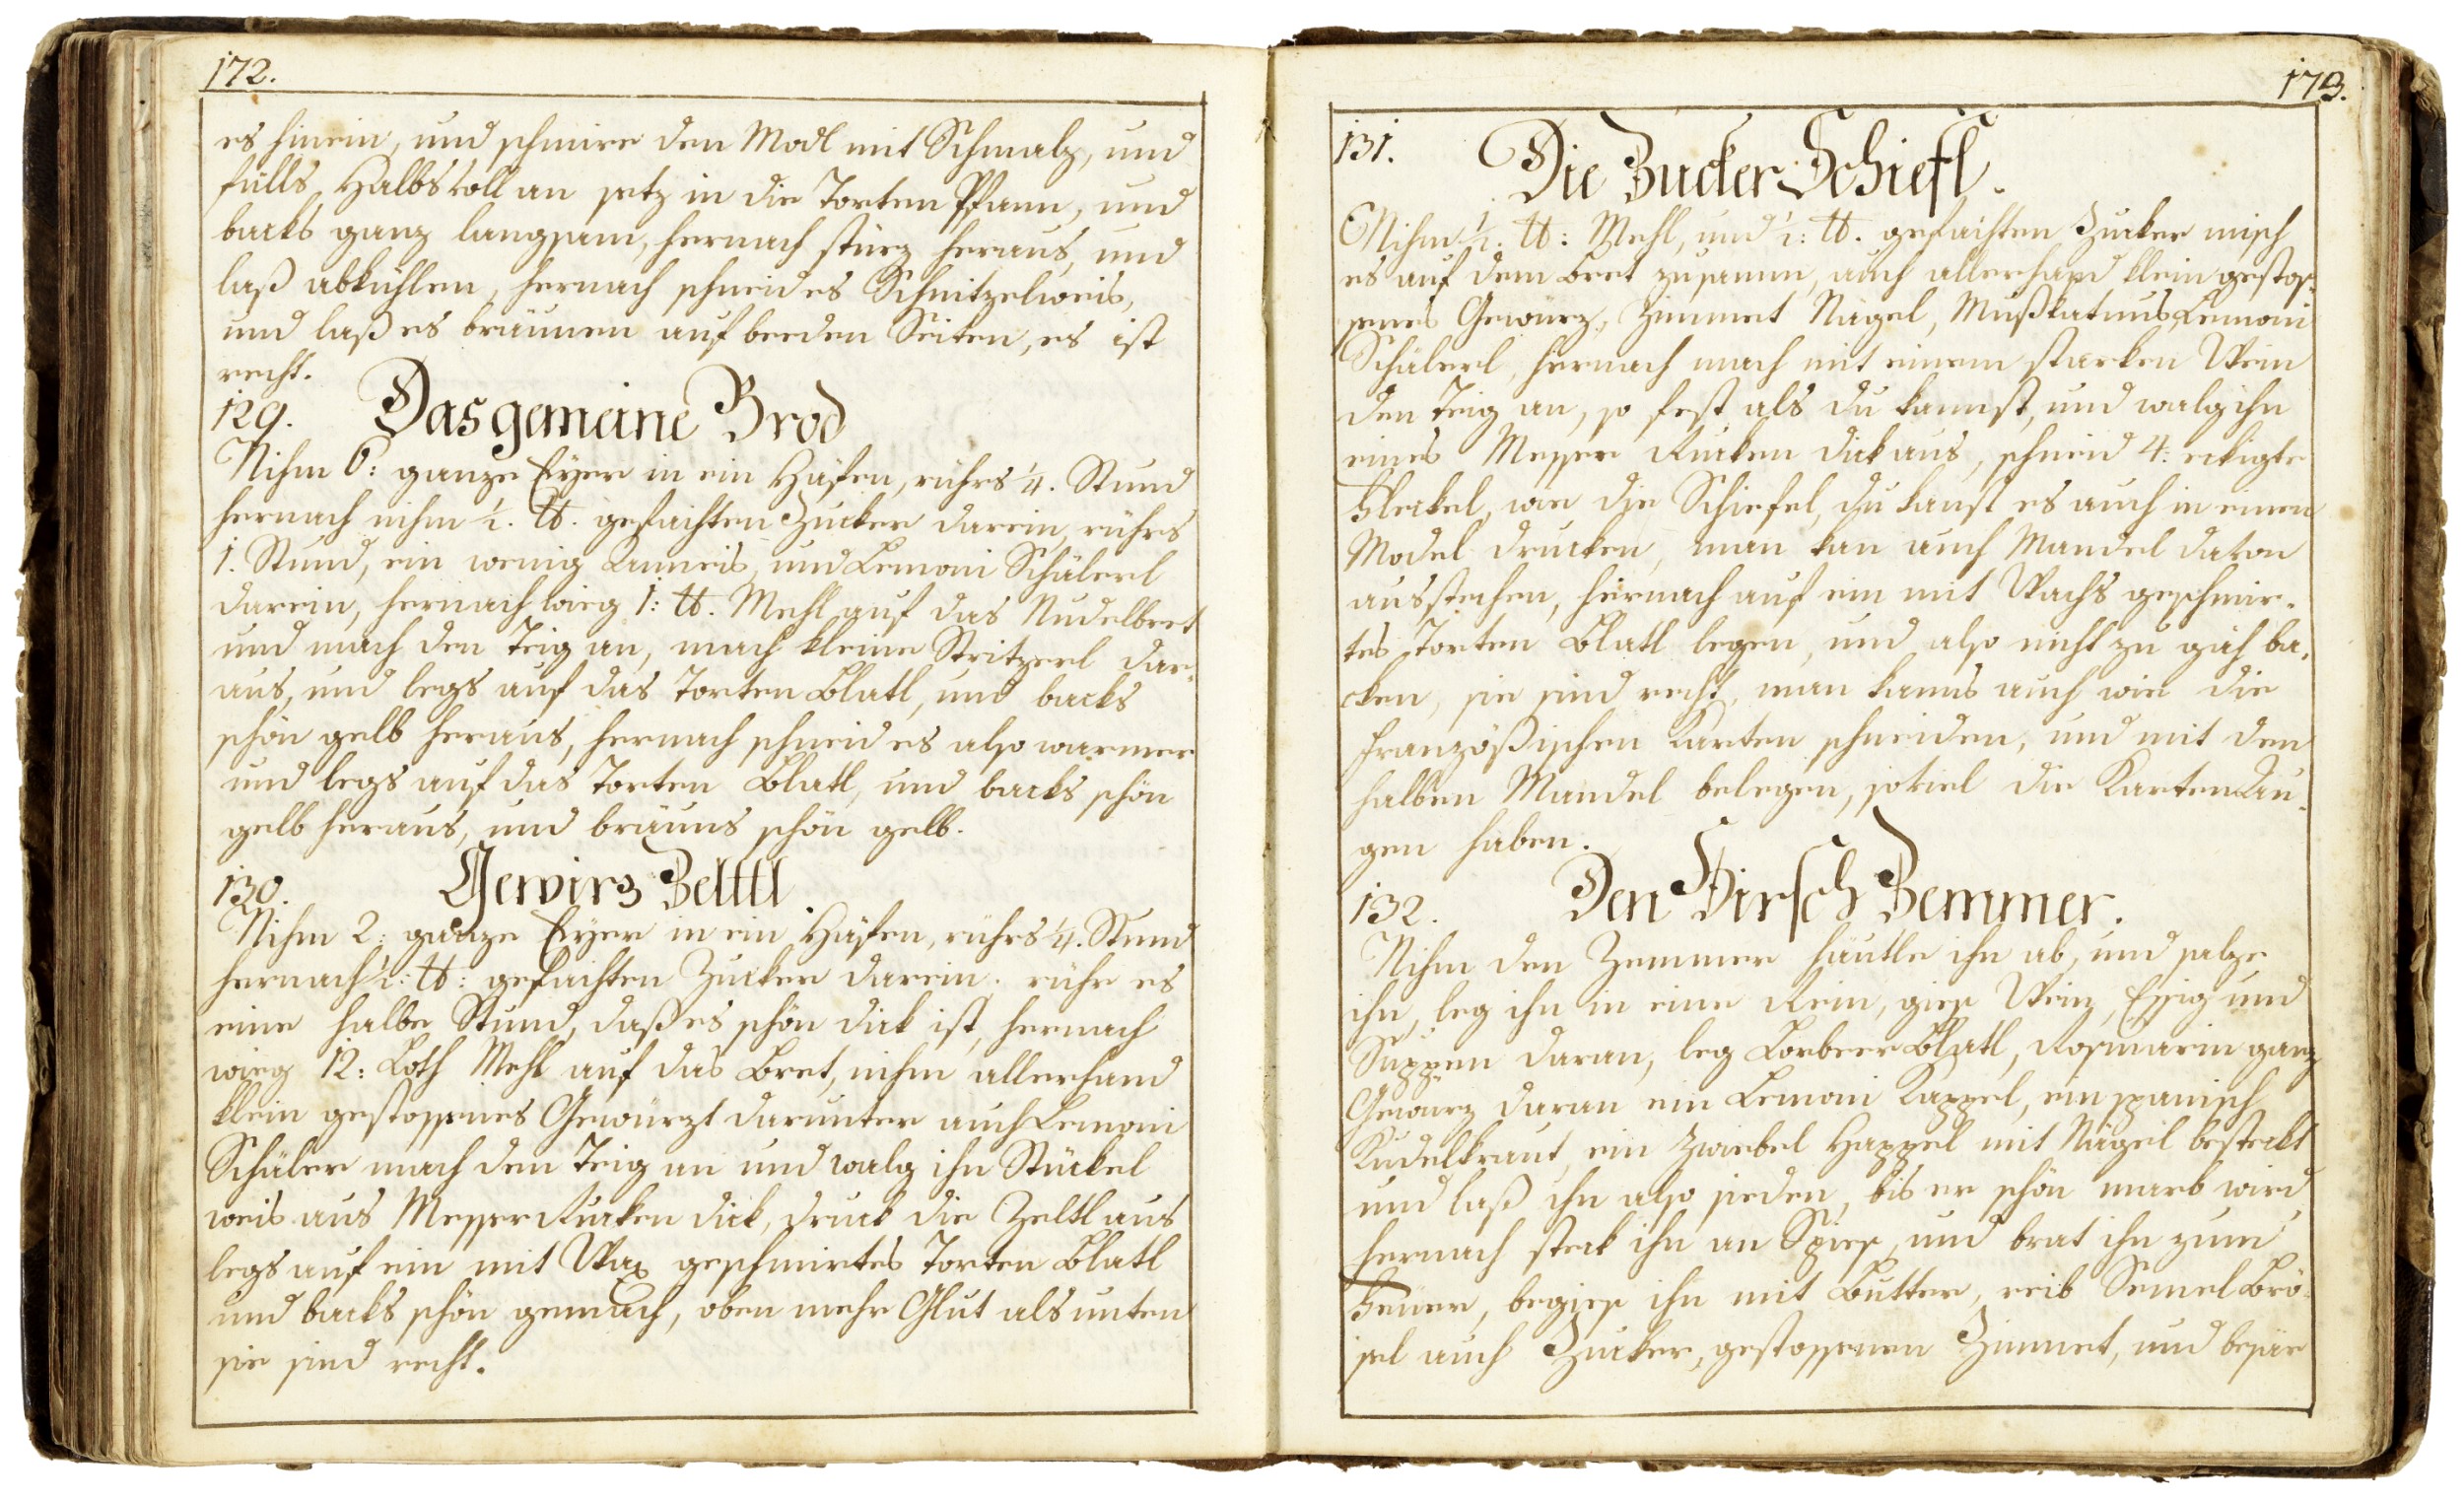 172.
es hinein, und schmire den Modl mit Schmalz, und
fülls Halbs voll an setz in die Torten Pfann, und
backs ganz langsam, hernach stürz heraus, und
laß abkühlen, hernach schneid es Schnitzelweis,
und laß es bräunen auf beeden Seiten, es ist
recht.
129. Das gemeine Brod
Nihm 6: ganze Eyer in ein Häfen, rührs 1/4. Stund
hernach nihm 1/2. ℔. gefaichten Zucker darein, rührs
1. Stund, ein wenig Anneis, und Lemoni Schälerl
darein, hernach wieg 1: ℔. Mehl auf das Nudelbret
und mach den Teig an, mach kleine Stritzerl dar-
aus, und legs auf das Torten Blatl, und backs
schön gelb heraus, hernach schneid es also warmer
und legs auf das Torten Blatl, und backs schön
gelb heraus, und bräuns schön gelb.
130. Gewirz Zelttl.
Nihm 2: ganze Eyer in ein Häfen, rührs 1/4. Stund
hernach 1/2: ℔: gefaichten Zucker darein. rühr es
eine halbe Stund, daß es schön dick ist, hernach
wieg 12: Loth Mehl auf das Bret, nihm allerhand
klein gestossenes Gewürzt darunter auch Lemoni
Schäler mach den Teig an und walg ihn Stückel
weis aus Messer Rucken dick, druck die Zeltl aus
legs auf ein mit Wax geschmirtes Torten Blatl
und backs schön gemach, oben mehr Glut als unten
sie sind recht.
173.
131. Die Zucker Schiefl.
Nihm 1/2. ℔: Mehl, und 1/2: ℔. gefaichten Zucker misch
es auf dem Bret zusamm, auch allerhand klein gestos-
senes Gewürz, Zimmet Nägel, Mußkatnus Lemoni
Schälerl, hernach mach mit einem starken Wein
den Teig an, so fest als du kannst, und walg ihn
eines Messer Rucken dick aus, schneid 4: eckigte
Fleckel, wie die Schiefel, du kanst es auch in einen
Model drucken, man kan auch Mandel davon
ausstechen, hernach auf ein mit Wachs geschmir-
tes Torten Blatl legen, und also nicht zu gäh ba-
cken, sie sind recht, man kanns auch wie die
französischen Karten schneiden, und mit den
halben Mandel belegen, soviel die Karten Au-
gen haben.
132. Den Hirsch Zemmer.
Nihm den Zemmer häutle ihn ab, und salze
ihn, leg ihn in eine Rein, gies Wein, Essig und
Suppen daran, leg Lorbeer Blatl, Rosmarin ganz
Gewürz daran ein Lemoni Kappel, ein spanisch
Kudelkraut, ein Zwiebel Happel mit Nägeil besteckt
und laß ihn also sieden, bis er schön marb wird
hernach steck ihn an Spies, und brat ihn zum
Feuer, begies ihn mit Butter, reib Semel Brö-
sel auch Zucker, gestossenen Zimmet, und besäe